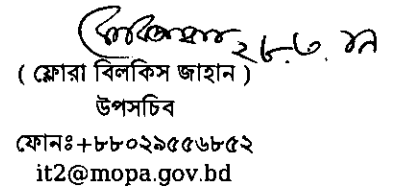 ২৮.৩.
( ফ্লোরা বিলকিস জাহান )
উপসচিব
ফোনঃ+৮৮০২৯৫৫৬৮৫২
it2@mopa.gov.bd